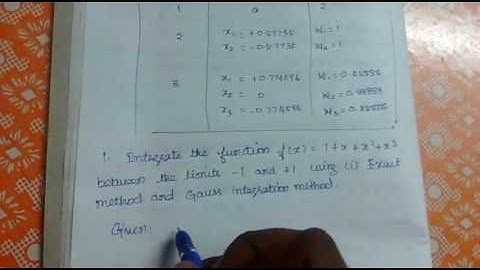 1 0 2
2 x₁ = +0.57735 W₁ = 1
x₂ = -0.57735 W₂ = 1
3 x₁ = +0.774596 W₁ = 0.55555
x₂ = 0 W₂ = 0.88889
x₃ = -0.774596 W₃ = 0.55555
1. Integrate the function f(x) = 1+x+x²+x³
between the limits -1 and +1 using (i) Exact
method and Gauss integration method.
Given: